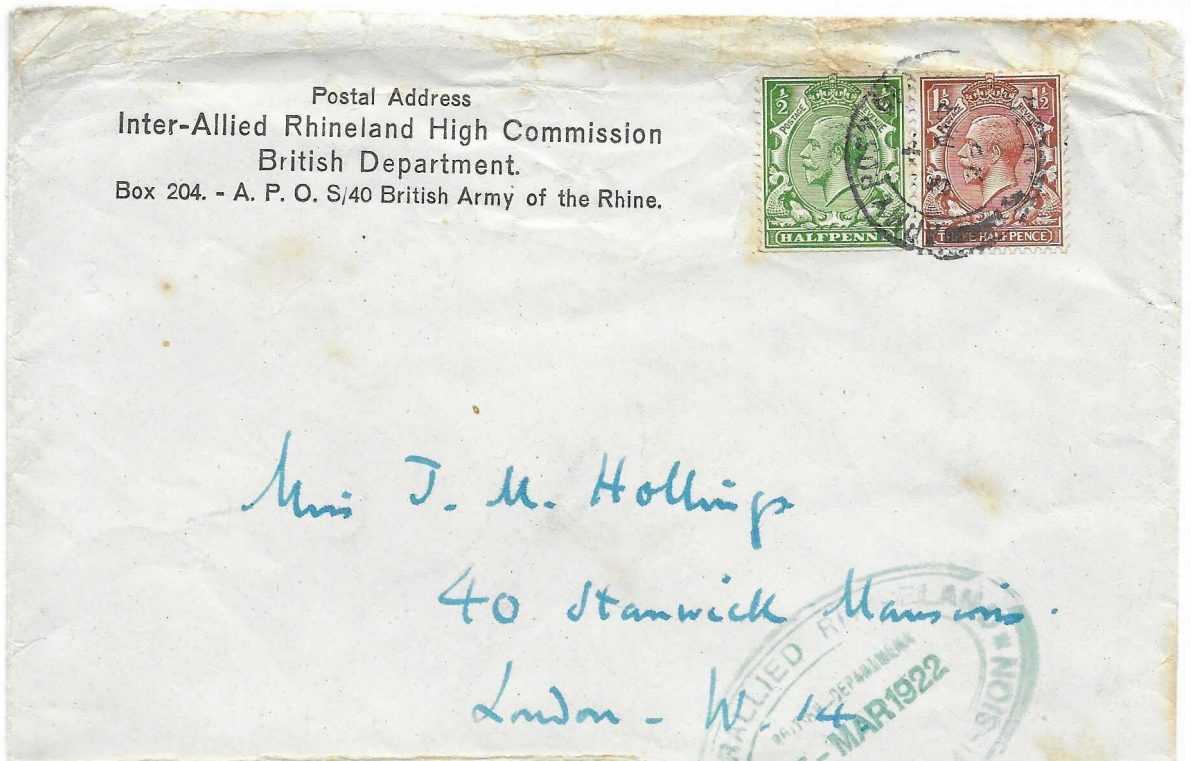 Postal Address
Inter-Allied Rhineland High Commission
British Department.
Box 204. - A. P. O. S/40 British Army of the Rhine.
½ ½
POSTAGE REVENUE
HALFPENN
1½ 1½
POSTAGE REVENUE
THREE HALFPENCE
ARMY
Miss J. M. Hollings
40 Stanwick Mansions.
London - W. 14
RALLIED
SION
- MAR 1922